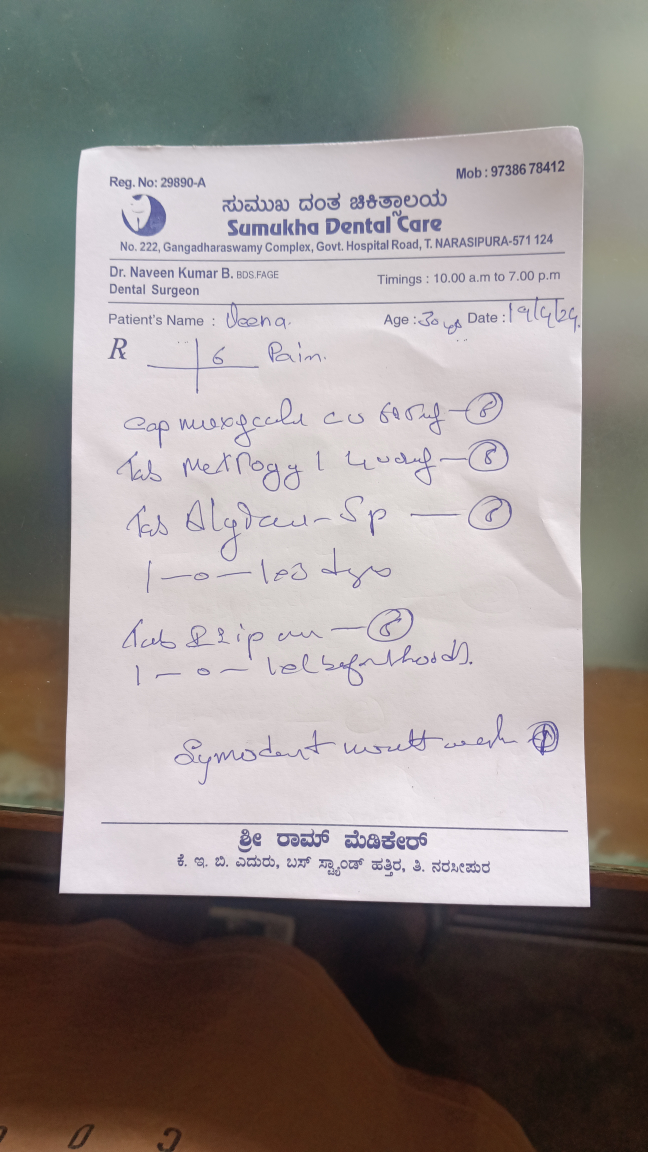 Reg. No: 29890-A
Mob : 97386 78412
ಸುಮುಖ ದಂತ ಚಿಕಿತ್ಸಾಲಯ
Sumukha Dental Care
No. 222, Gangadharaswamy Complex, Govt. Hospital Road, T. NARASIPURA-571 124
Dr. Naveen Kumar B. BDS.FAGE
Timings : 10.00 a.m to 7.00 p.m
Dental Surgeon
Patient's Name : Veena. Age : 30 yrs Date : 19/4/24.
R 6 Pain.
Cap
Tab Metrogyl - 8
Tab - Sp — 8
1 - 0 - 1
Tab - 8
1 - 0 - 1
Symodent mouth wash 1
ಶ್ರೀ ರಾಮ್ ಮೆಡಿಕೇರ್
ಕೆ. ಇ. ಬಿ. ಎದುರು, ಬಸ್ ಸ್ಟ್ಯಾಂಡ್ ಹತ್ತಿರ, ತಿ. ನರಸೀಪುರ